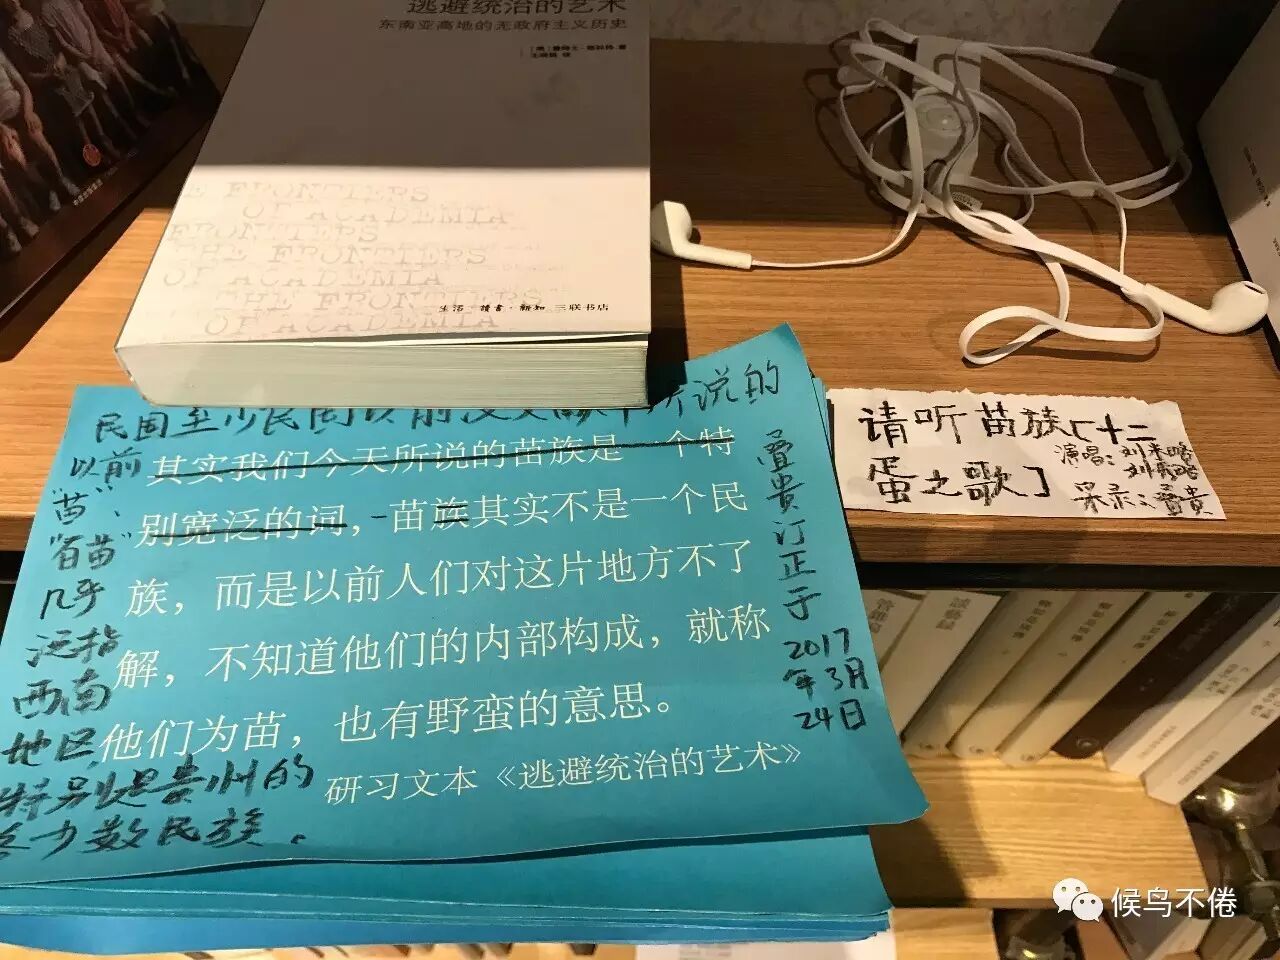 逃避统治的艺术
东南亚高地的无政府主义历史
THE FRONTIERS
OF ACADEMIA
FRONTIERS
THE FRONTIERS
OF ACADEMIA
THE FRONTIERS
OF ACADEMIA
生活·讀書·新知 三联书店
民国至少民国以前汉文献中所说的
以前
"苗"、
"百苗"
几乎
泛指
西南
地区,
特别是贵州的
各少数民族.
其实我们今天所说的苗族是一个特
别宽泛的词，苗族其实不是一个民
族，而是以前人们对这片地方不了
解，不知道他们的内部构成，就称
他们为苗，也有野蛮的意思。
研习文本《逃避统治的艺术》
叠贵订正于
2017
年3月
24日
请听苗族「十二
蛋之歌」
演唱：
采录：叠贵
候鸟不倦